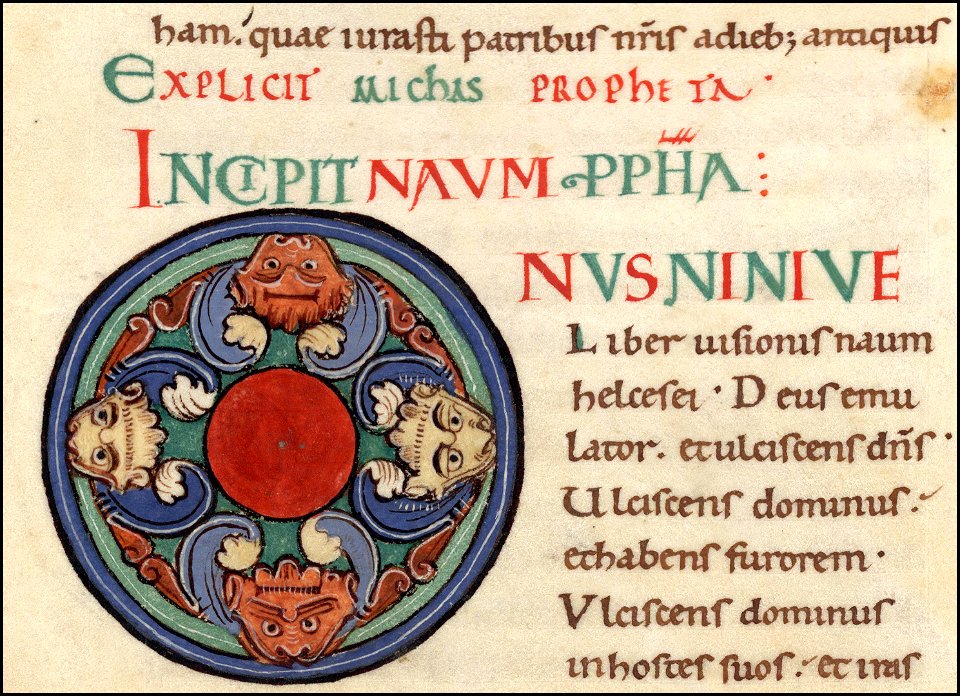 ham. quae iurasti patribus nr̄is adieb; antiquis
EXPLICIT MICHAS PROPHETA ·
INCIPIT NAVM PPH̄A :
NUS NINIVE
Liber uisionis naum
helcesei · Deus emu
lator. et ulciscens dn̄s ·
Ulciscens dominus.
et habens furorem ·
Ulciscens dominus
in hostes suos. et iras